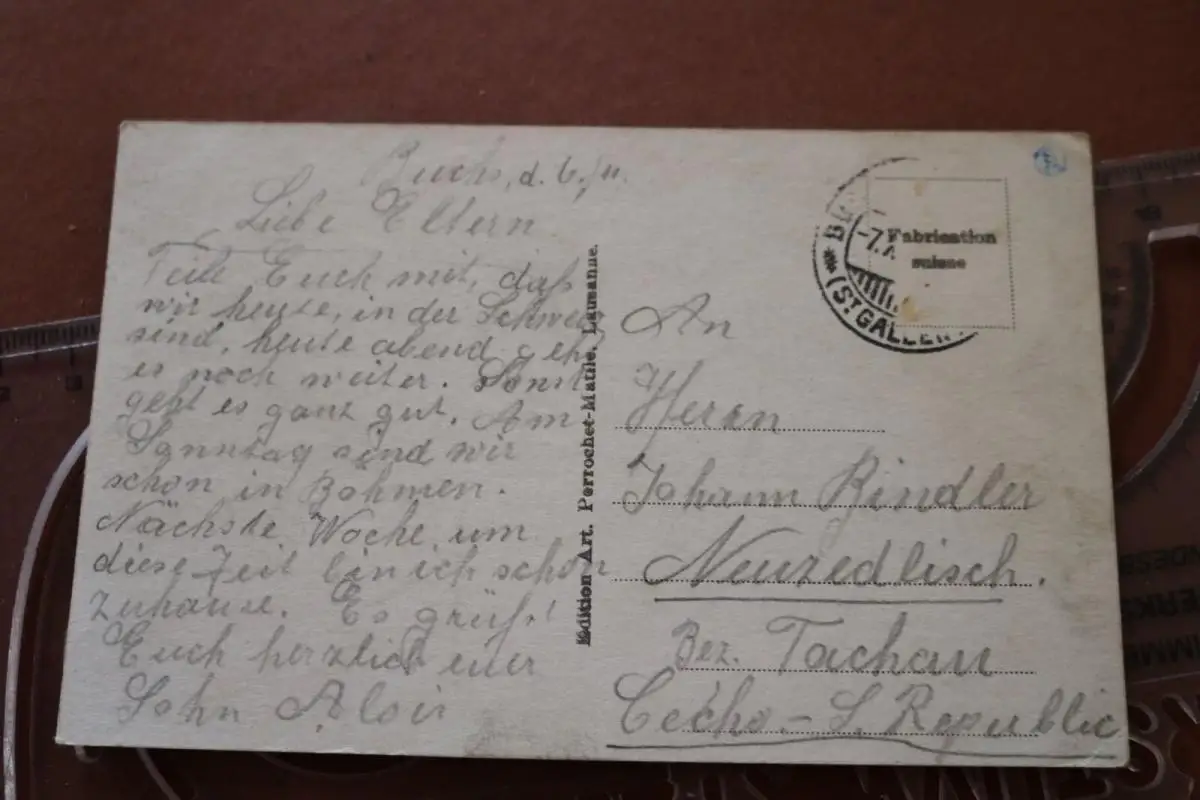 Buchs, d. 6./11.
Liebe Eltern
Teile Euch mit, daß
wir heute, in der Schweiz
sind, heute abend geht
es noch weiter. Sonst
geht es ganz gut. Am
Sonntag sind wir
schon in Böhmen.
Nächste Woche um
diese Zeit bin ich schon
zuhause. Es grüßt
Euch herzlich euer
Sohn Alois
Edition Art. Perrochet-Matile, Lausanne.
(ST. GALLEN
-7.
Fabrication
suisse
An
Herrn
Johann Bindler
Neuzedlisch.
Bez. Tachau
Cecho-S. Republic